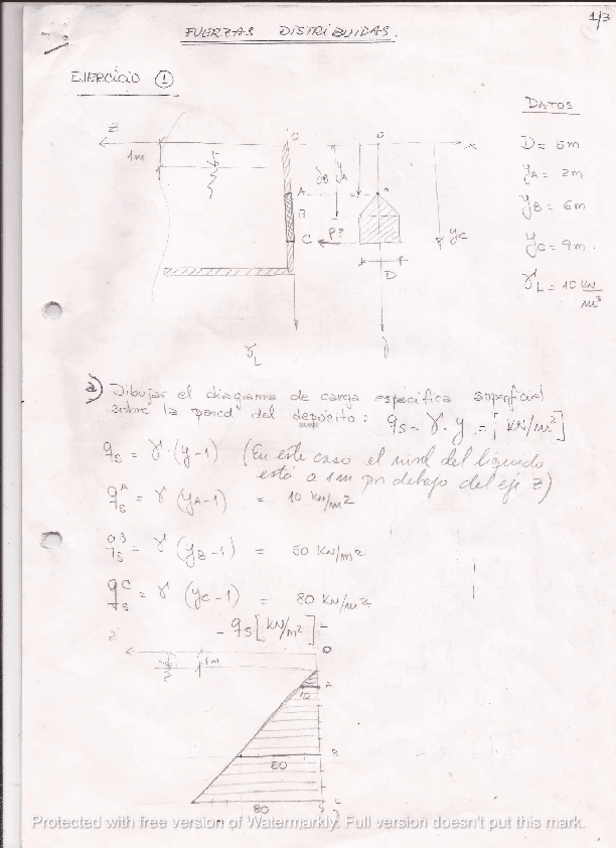 1/3
FUERZAS DISTRIBUIDAS.
EJERCICIO 1
DATOS
D = 5m
yA = 2m
yB = 6m
yC = 9m.
γL = 10 KN/m³
Z
O
O
x
1m
yB
yA
A
B
C
P?
yC
D
γL
a) Dibujar el diagrama de carga especifica superficial
sobre la pared del depósito: qs = γ · y = [KN/m²]
qs = γ (y-1) (En este caso el nivel del liquido
está a 1m por debajo del eje Z)
qsA = γ (yA-1) = 10 KN/m²
qsB = γ (yB-1) = 50 KN/m²
qsC = γ (yC-1) = 80 KN/m²
qs [KN/m²]
Z
1m
O
A
10
B
80
Protected with free version of Watermarkly. Full version doesn't put this mark.